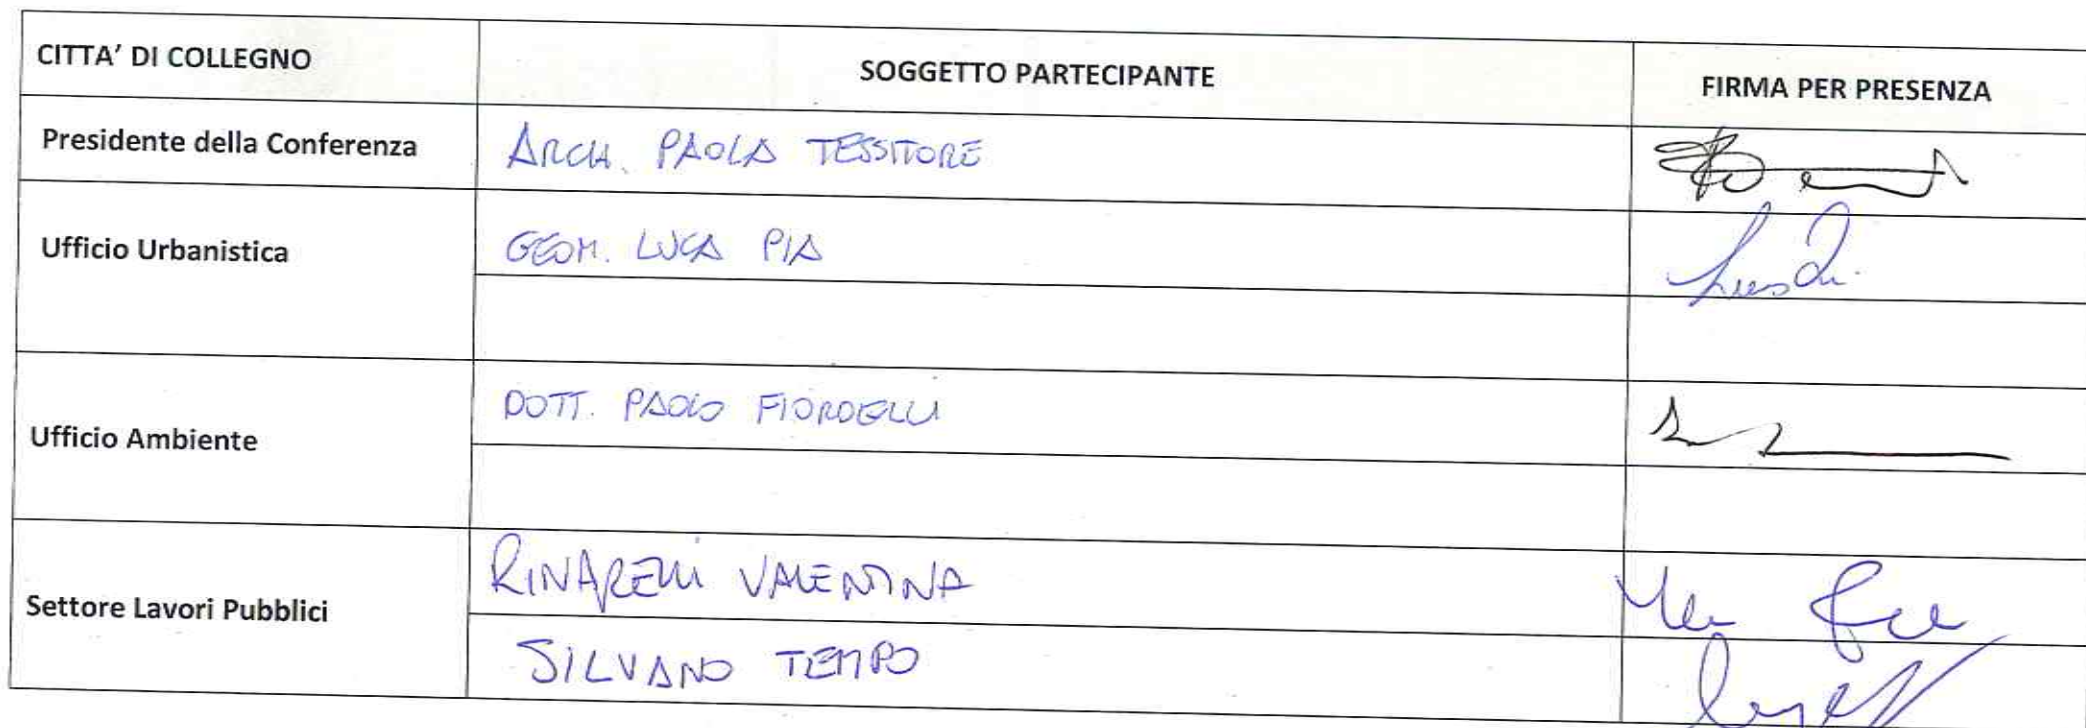 CITTA' DI COLLEGNO SOGGETTO PARTECIPANTE FIRMA PER PRESENZA
Presidente della Conferenza ARCH. PAOLA TESSITORE
Ufficio Urbanistica GEOM. LUCA PIA
Ufficio Ambiente DOTT. PAOLO FIORDELLI
Settore Lavori Pubblici RINARELLI VALENTINA
SILVANO TEMPO